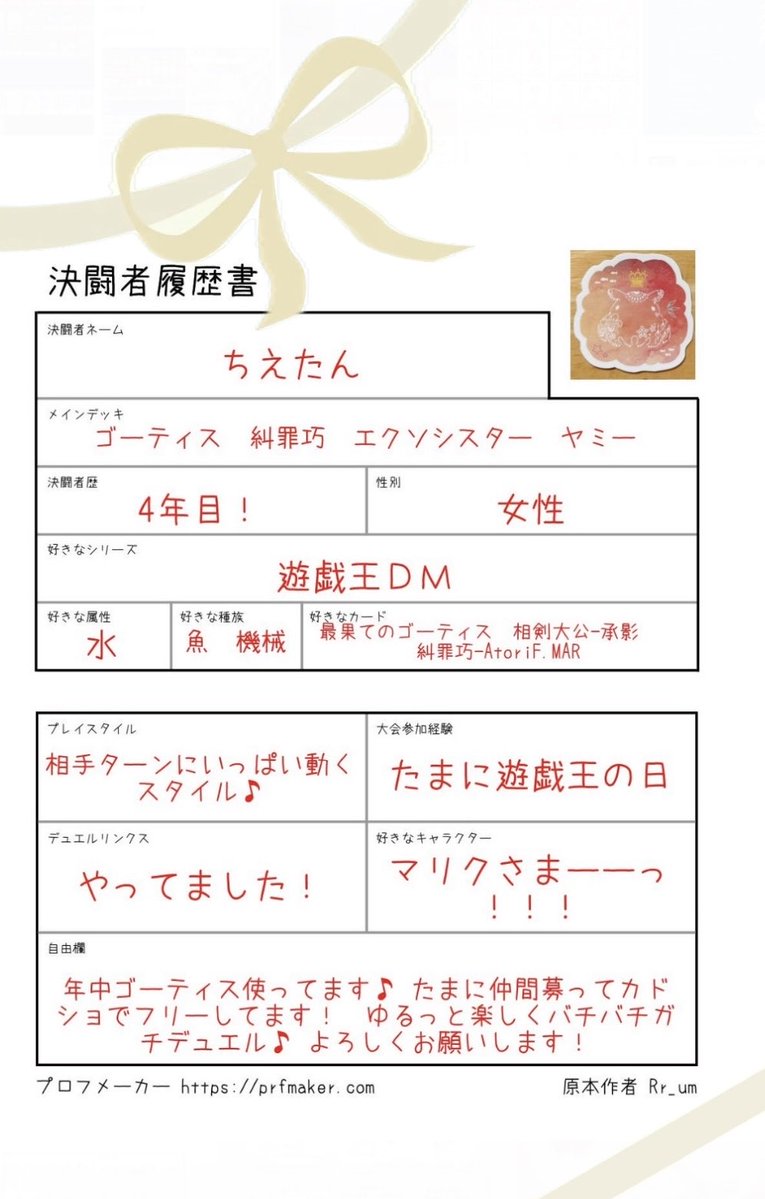 決闘者履歴書
決闘者ネーム
ちえたん
メインデッキ
ゴーティス　糾罪巧　エクソシスター　ヤミー
決闘者歴
4年目！
性別
女性
好きなシリーズ
遊戯王ＤＭ
好きな属性
水
好きな種族
魚　機械
好きなカード
最果てのゴーティス　相剣大公-承影
糾罪巧-AtoriF.MAR
プレイスタイル
相手ターンにいっぱい動く
スタイル♪
大会参加経験
たまに遊戯王の日
デュエルリンクス
やってました！
好きなキャラクター
マリクさまーーっ
！！！
自由欄
年中ゴーティス使ってます♪ たまに仲間募ってカド
ショでフリーしてます！　ゆるっと楽しくバチバチガ
チデュエル♪ よろしくお願いします！
プロフメーカー https://prfmaker.com
原本作者 Rr_um